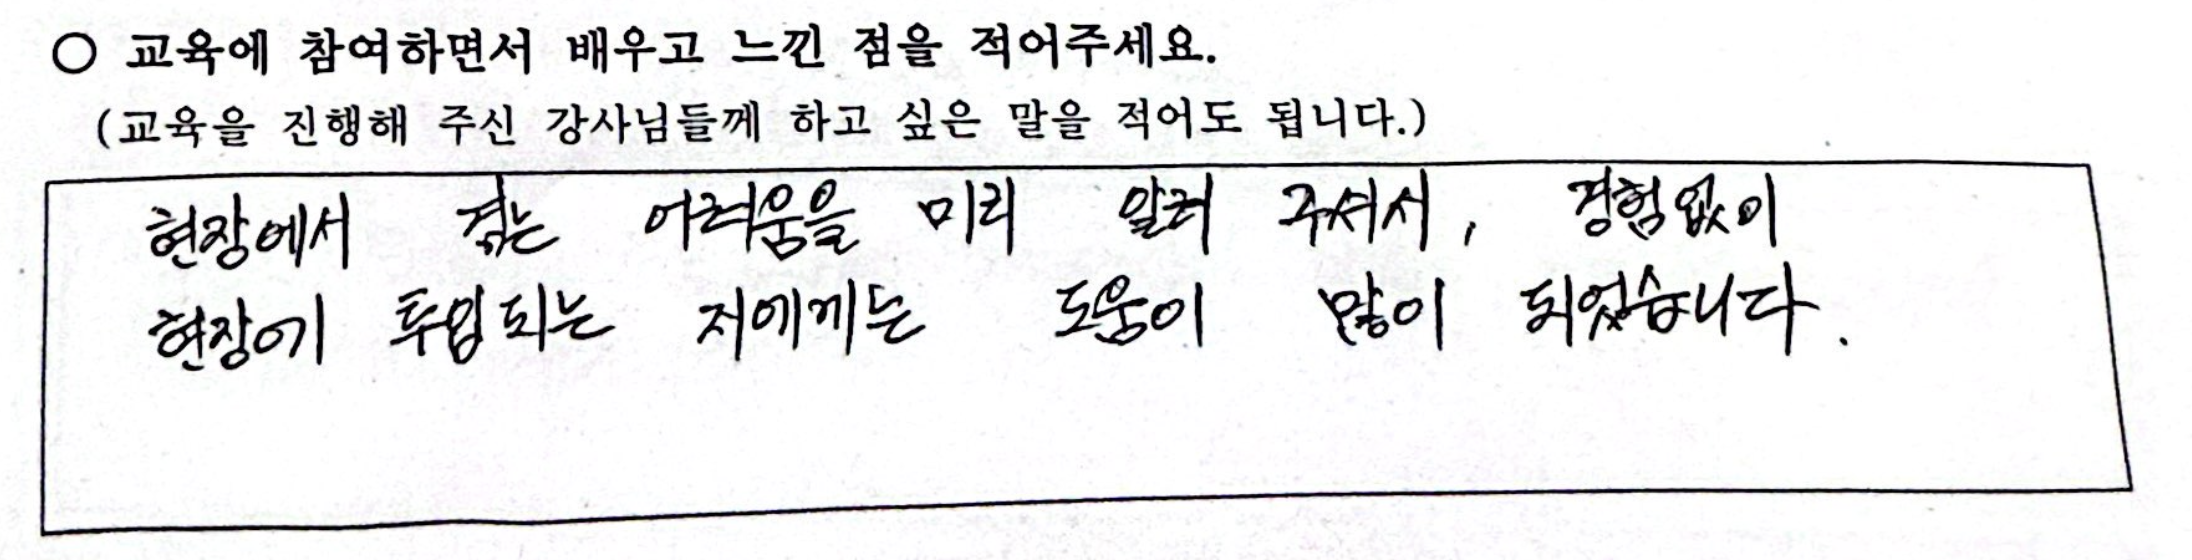 ○ 교육에 참여하면서 배우고 느낀 점을 적어주세요.
(교육을 진행해 주신 강사님들께 하고 싶은 말을 적어도 됩니다.)
현장에서 겪는 어려움을 미리 알려 주셔서, 경험없이
현장에 투입되는 저에게는 도움이 많이 되었습니다.